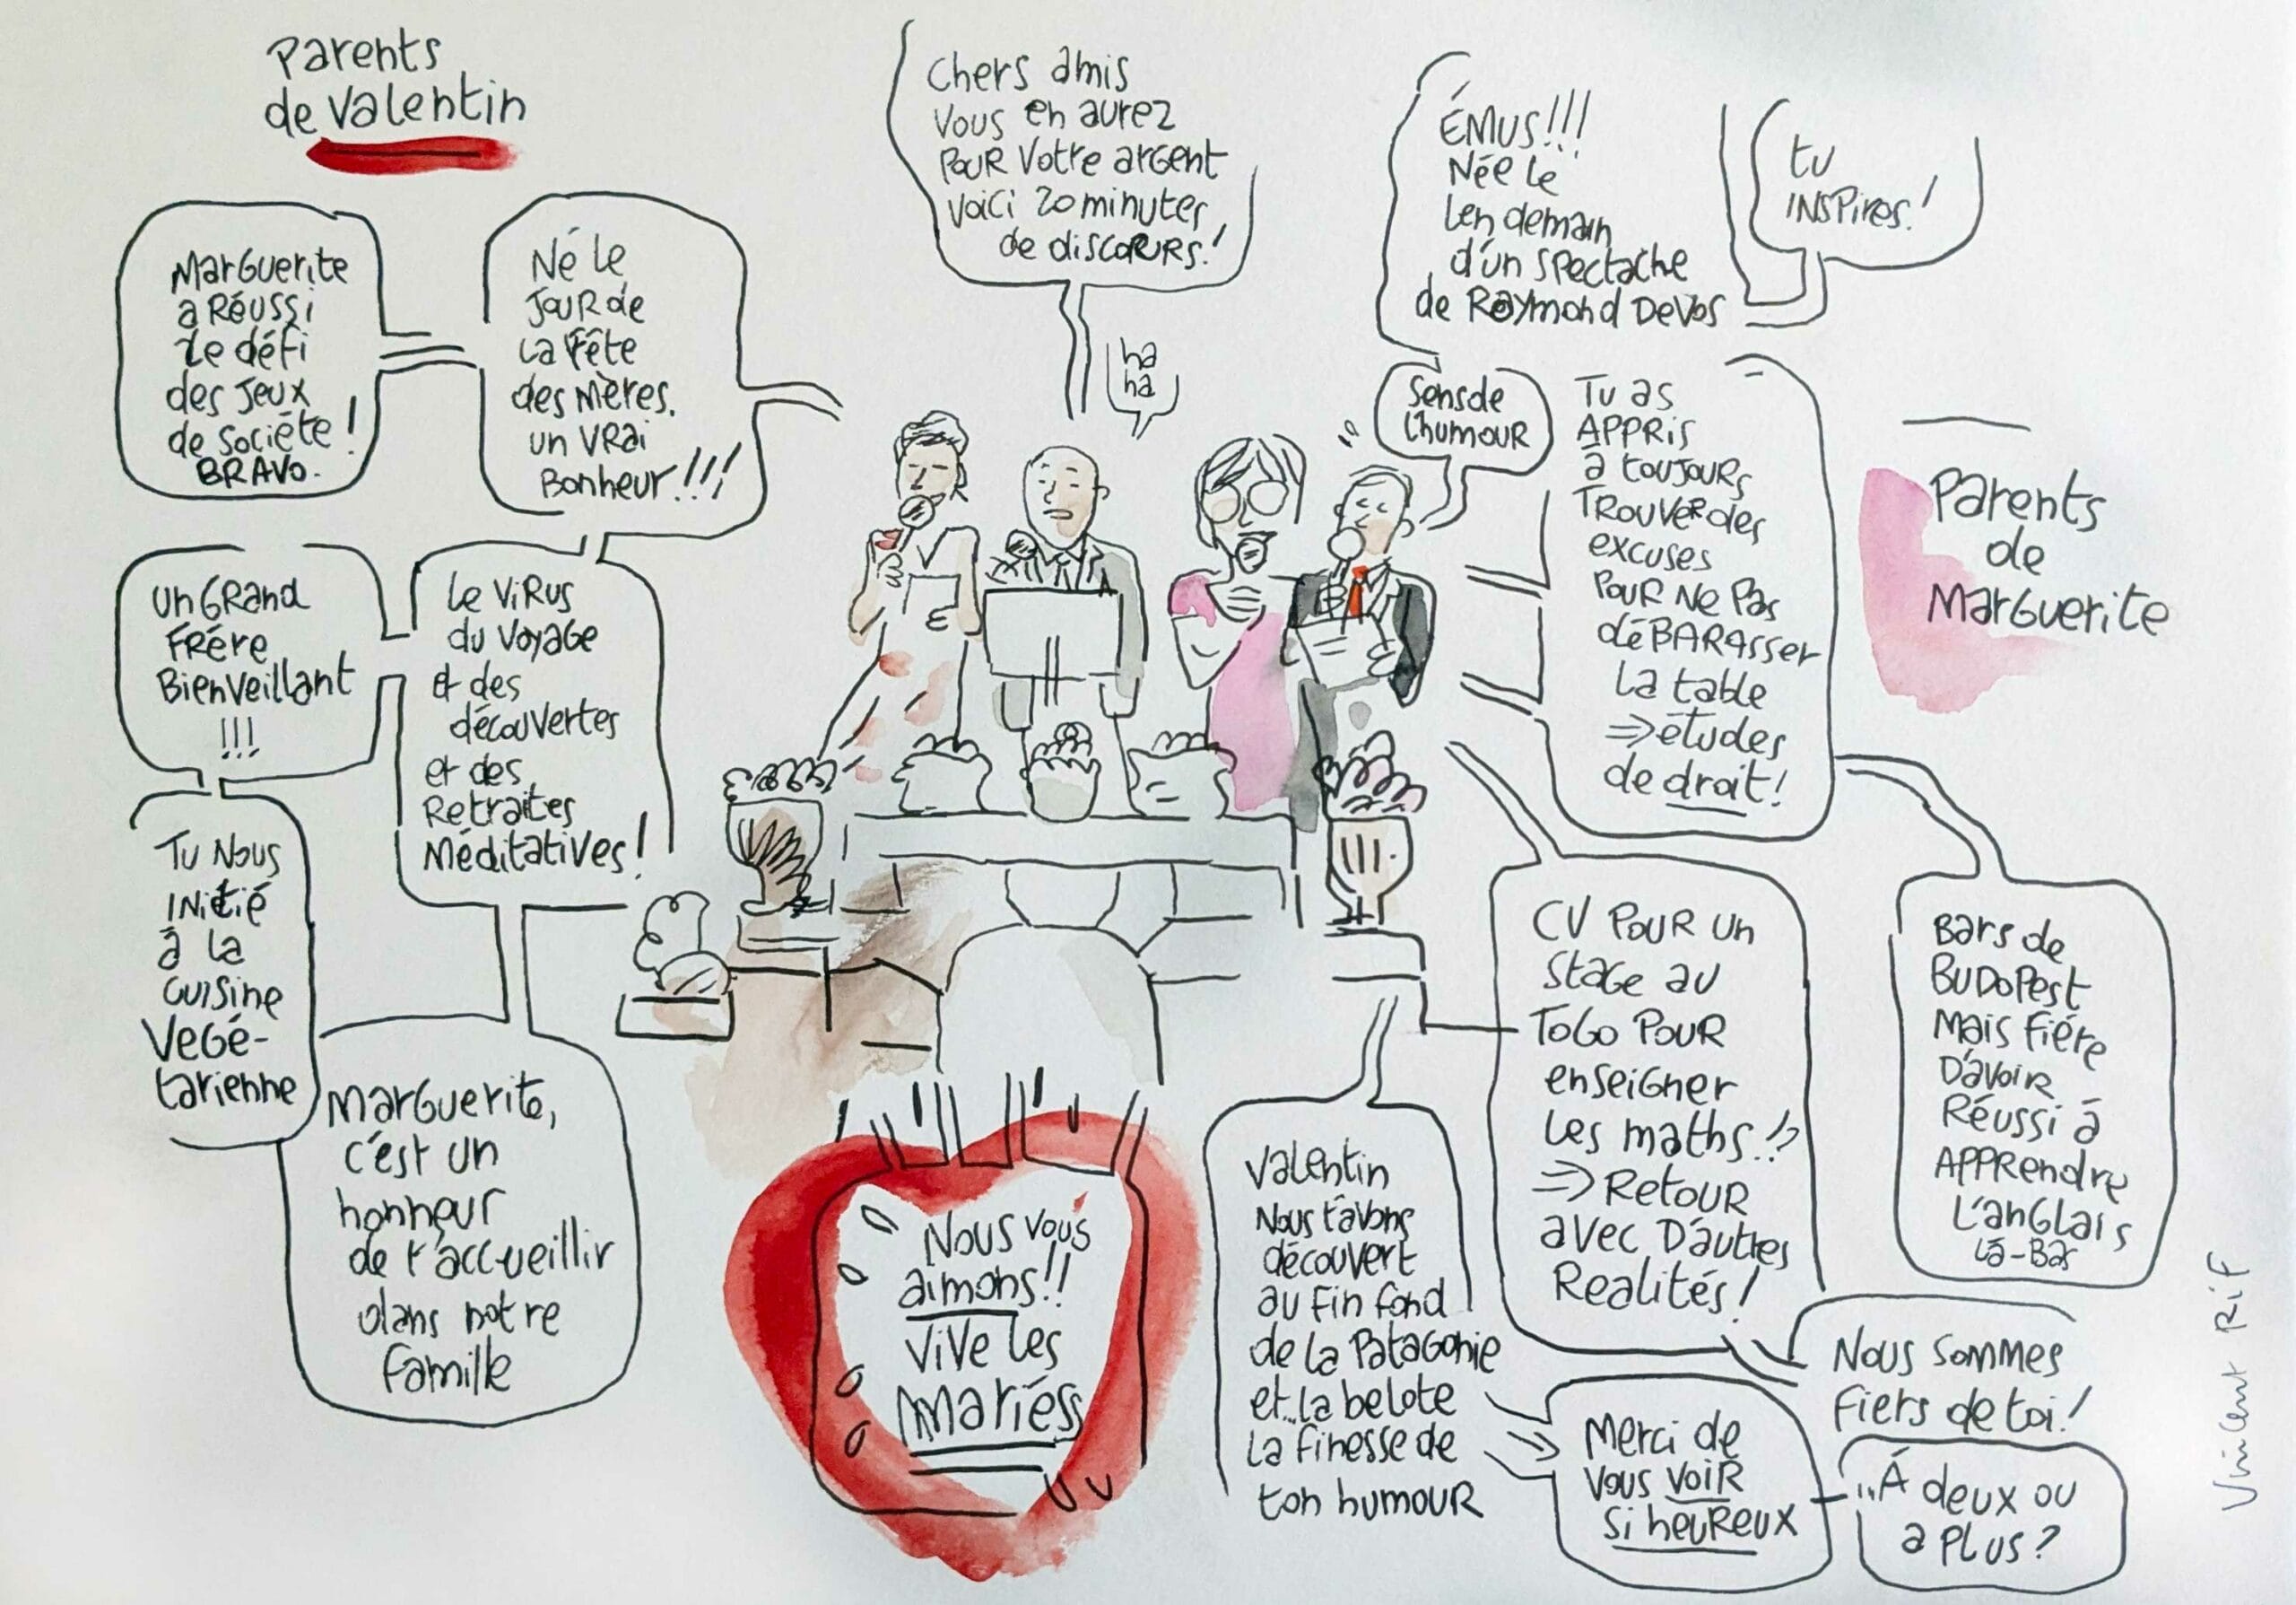 Parents
de Valentin
Marguerite
a Réussi
le défi
des Jeux
de Société !
BRAVO.
Né le
Jour de
la Fête
des Mères.
un vrai
Bonheur !!!
Un Grand
Frère
Bienveillant
!!!
Le Virus
du voyage
et des
découvertes
et des
Retraites
Méditatives !
Tu Nous
initié
à la
cuisine
Végé-
tarienne
Marguerite,
c'est un
honneur
de t'accueillir
dans notre
famille
Chers amis
Vous en aurez
pour votre argent
voici 20 minutes
de discours !
ha
ha
ÉMUS !!!
Née le
lendemain
d'un spectacle
de Raymond Devos
tu
INSPires !
Sens de
l'humour
Tu as
APPRis
à toujours
Trouver des
excuses
pour ne pas
déBARAsser
la table
⇒ études
de droit !
Parents
de
Marguerite
CV pour un
stage au
Togo pour
enseigner
les maths !?
⇒ Retour
avec D'autres
Realités !
Bars de
BUDOPest
mais fière
D'avoir
Réussi à
APPRendre
L'anglais
là-Bas
Nous sommes
fiers de toi !
Valentin
Nous t'avons
découvert
au fin fond
de la Patagonie
et...la belote
la finesse de
ton humour
Merci de
vous voir
si heureux
..À deux ou
a plus ?
Nous vous
aimons !!
Vive les
mariés
Vincent Rif